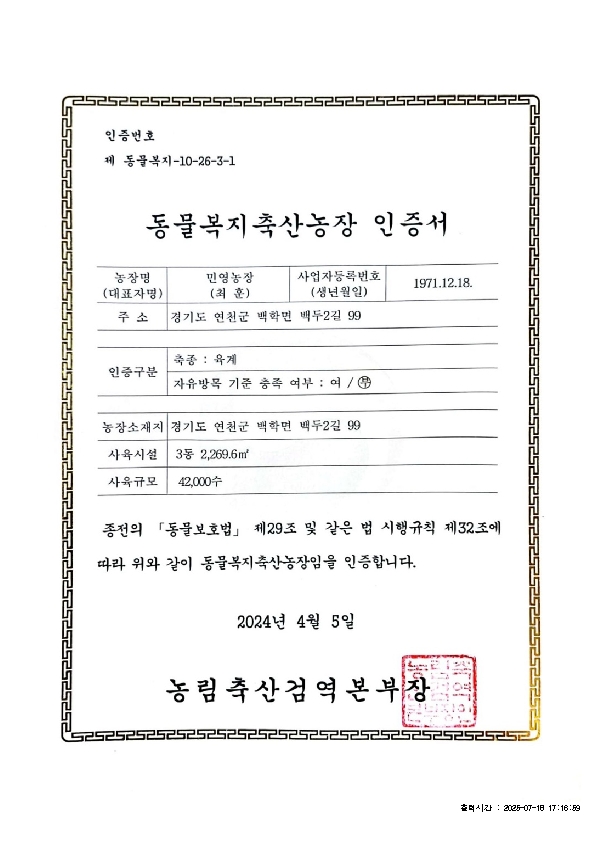 인증번호
제 동물복지-10-26-3-1
동물복지축산농장 인증서
농장명 (대표자명) 민영농장 (최 훈) 사업자등록번호 (생년월일) 1971.12.18.
주 소 경기도 연천군 백학면 백두2길 99
인증구분 축종 : 육계
자유방목 기준 충족 여부 : 여 / 부
농장소재지 경기도 연천군 백학면 백두2길 99
사육시설 3동 2,269.6㎡
사육규모 42,000수
종전의 「동물보호법」 제29조 및 같은 법 시행규칙 제32조에
따라 위와 같이 동물복지축산농장임을 인증합니다.
2024년 4월 5일
농림축산검역본부장
출력시간 : 2025-07-18 17:16:59